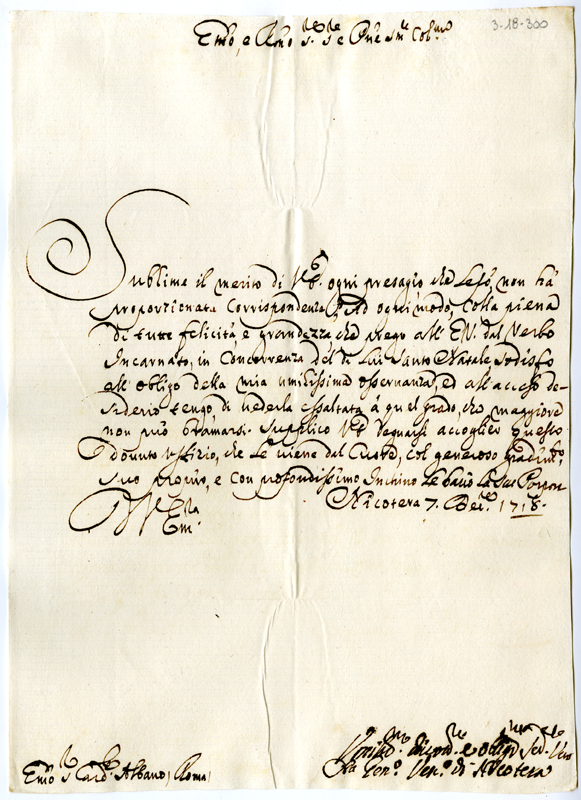 3-18-300
Emo, e Rmo Sre Sre e Pne Smo Colmo
Sublime il merito di V.E. ogni presagio che Le fo, non ha
proportionata Corrispondenza. Ad ogni modo, colla piena
di tutte felicità, e grandezza che prego all' E.V. dal Verbo
Incarnato, in Concorrenza del di Lui Santo Natale sodisfo
all' obligo della mia umilissima osservanza, ed all' acceso de-
siderio tengo, di vederla essaltata à quel grado, che maggiore
non può bramarsi. Supplico V.E. degnarsi accoglier questo
dovuto uffizio, che Le viene dal Cuore, col generoso gradimto
suo proprio, e con profondissimo Inchino Le bacio la Sac. Porpora
Nicotera 7. Dec.e 1718.
D V. Ema
Emo S. Card. Albano, Roma
Umilmo e obligmo
Vco di Nicotera